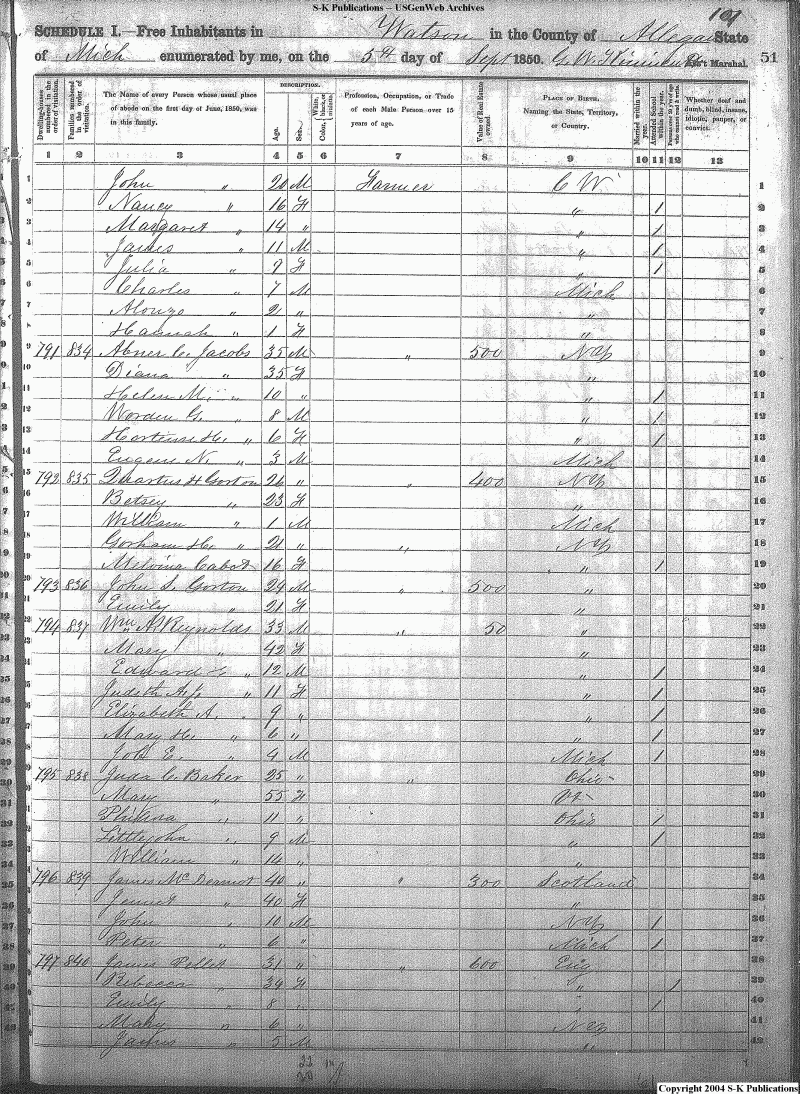 S-K Publications – USGenWeb Archives
101
SCHEDULE I.—Free Inhabitants in Watson in the County of Allegan State
of Mich enumerated by me, on the 5th day of Sept 1850. G. W. Ass't Marshal. 51
Dwelling-houses numbered in the order of visitation.
Families numbered in the order of visitation.
The Name of every Person whose usual place of abode on the first day of June, 1850, was in this family.
DESCRIPTION.
Age.
Sex.
White, black, or mulatto.
Profession, Occupation, or Trade of each Male Person over 15 years of age.
Value of Real Estate owned.
PLACE OF BIRTH. Naming the State, Territory, or Country.
Married within the year.
Attended School within the year.
Persons over 20 y'rs of age who cannot read & write.
Whether deaf and dumb, blind, insane, idiotic, pauper, or convict.
1 2 3 4 5 6 7 8 9 10 11 12 13
1 John " 20 M Farmer C W 1
2 Nancy " 16 F " / 2
3 Margaret " 14 " " / 3
4 James " 11 M " / 4
5 Julia " 9 F " / 5
6 Charles " 7 M Mich 6
7 Alonzo " 2 " " 7
8 Hannah " 1 F " 8
9 791 834 Abner C. Jacobs 35 M " 500 NY 9
10 Diana " 35 F " 10
11 Helen M. " 10 " " / 11
12 Worden G. " 8 M " / 12
13 Hortense H. " 6 F " / 13
14 Eugene N. " 3 M Mich 14
15 792 835 Quartus H Gorton 26 " " 400 NY 15
16 Betsey " 23 F " 16
17 William " 1 M Mich 17
18 Gorham H. " 21 " " NY 18
19 Melvina Cabot 16 F " / 19
20 793 836 John S. Gorton 24 M " 500 " 20
21 Emily " 21 F " 21
22 794 837 Wm A. Reynolds 33 M " 50 " 22
23 Mary " 42 F " 23
24 Edward " 12 M " / 24
25 Judith A. " 11 F " / 25
26 Elizabeth A. " 9 " " / 26
27 Mary H. " 6 " " / 27
28 Job E. " 4 M Mich / 28
29 795 838 Juda C. Baker 25 " " Ohio 29
30 Mary " 55 F Vt 30
31 Philena " 11 " Ohio / 31
32 Littlejohn " 9 M " / 32
33 William " 14 " " 33
34 796 839 James McDermot 40 " " 300 Scotland 34
35 Jennet " 40 F " 35
36 John " 10 M NY / 36
37 Peter " 6 " Mich / 37
38 797 840 James Pellet 31 " " 600 Eng 38
39 Rebecca " 34 F " / 39
40 Emily " 8 " " / 40
41 Mary " 6 " NY 41
42 James " 5 M " 42
22
20
Copyright 2004 S-K Publications